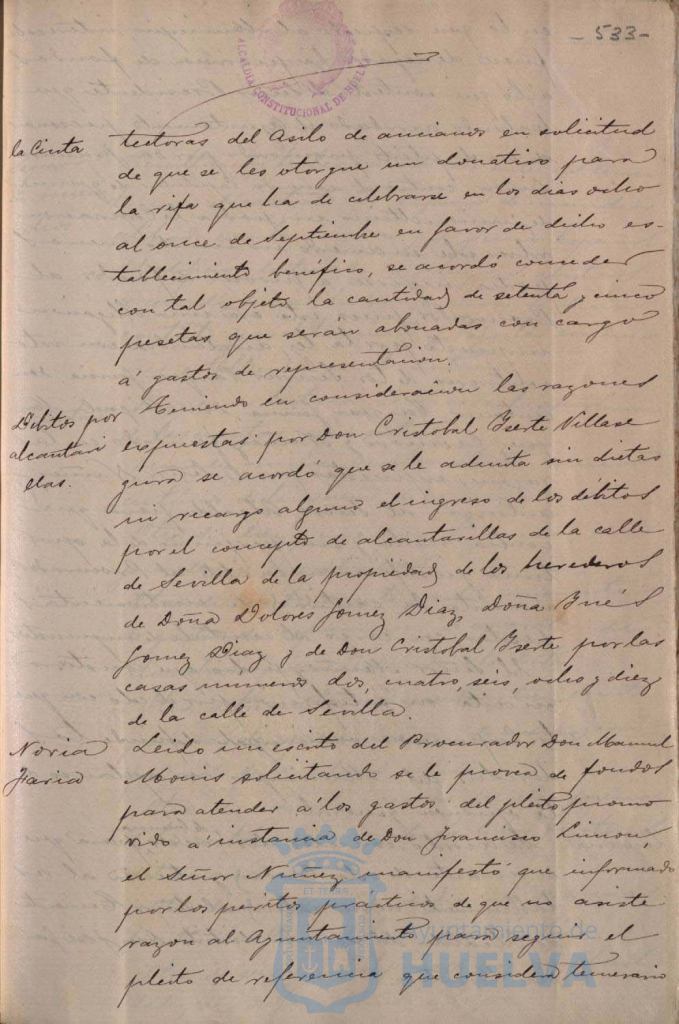 -533-
ALCALDIA CONSTITUCIONAL DE HUELVA
la Cinta
tectoras del Asilo de ancianos en solicitud
de que se les otorgue un donativo para
la rifa que ha de celebrarse en los dias ocho
al once de Septiembre en favor de dicho es-
tablecimiento benéfico, se acordó conceder
con tal objeto la cantidad de setenta y cinco
pesetas que serán abonadas con cargo
á gastos de representacion.
Debitos por
alcantari
llas.
Teniendo en consideracion las razones
expuestas por Don Cristobal Iserte Villase
gura se acordó que se le admita sin dietas
ni recargo alguno el ingreso de los débitos
por el concepto de alcantarillas de la calle
de Sevilla de la propiedad de los herederos
de Doña Dolores Gomez Diaz, Doña Inés
Gomez Diaz y de Don Cristobal Iserte por las
casas números dos, cuatro, seis, ocho y diez
de la calle de Sevilla.
Noria
Faria
Leido un escrito del Procurador Don Manuel
Monis solicitando se le provea de fondos
para atender á los gastos del pleito promo
vido á instancia de Don Francisco Limon,
el Señor Nuñez manifestó que informado
por los peritos prácticos de que no asiste
razon al Ayuntamiento para seguir el
pleito de referencia que considera temerario
Ayuntamiento de
HUELVA